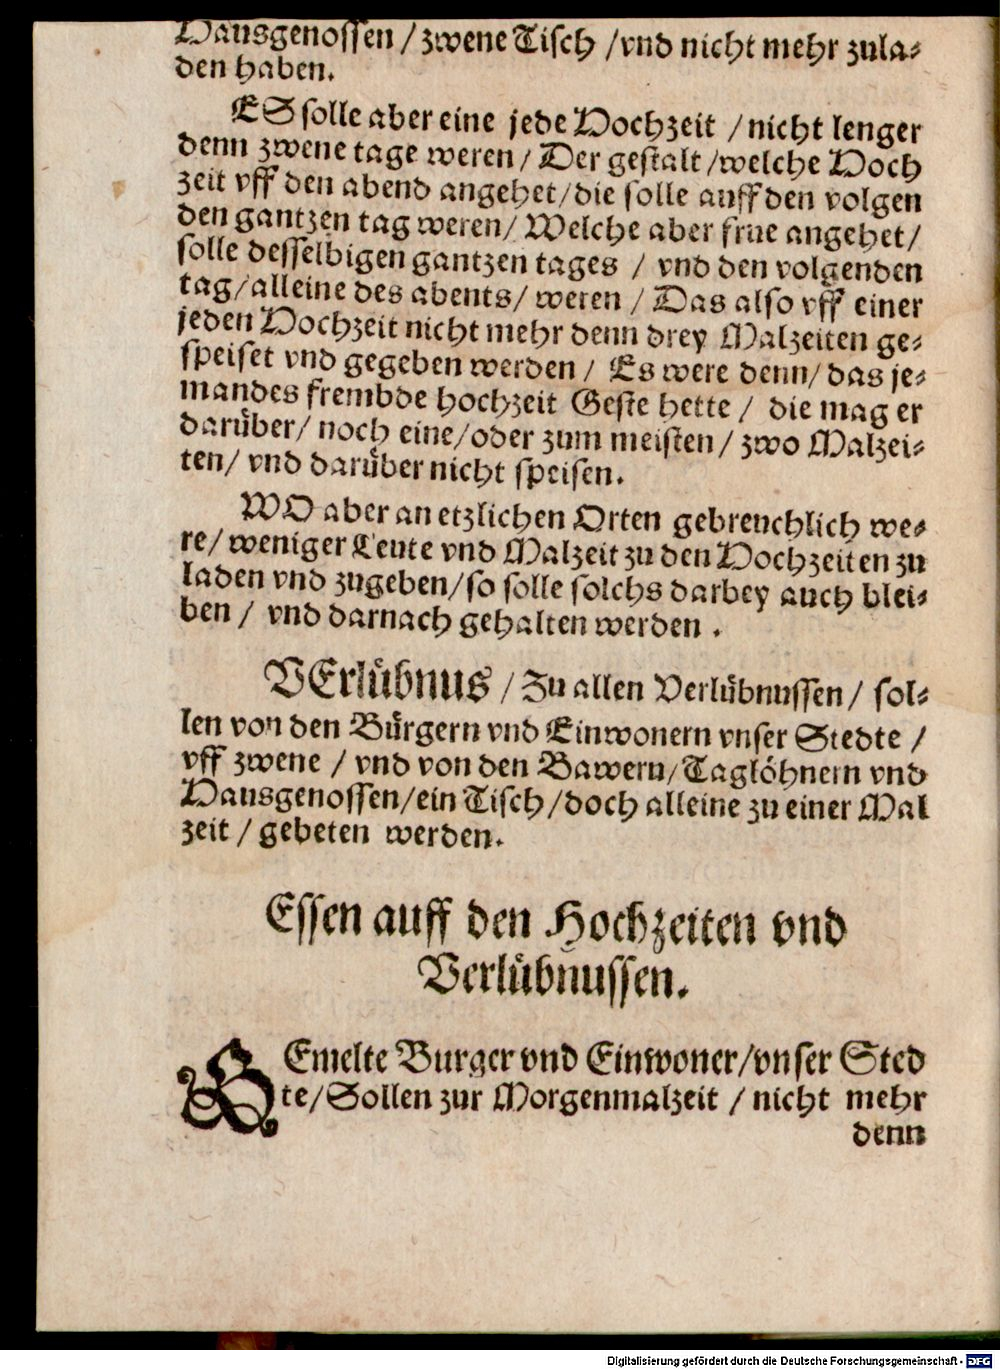 Hausgenossen / zwene Tisch / vnd nicht mehr zula⸗
den haben.
ES solle aber eine jede Hochzeit / nicht lenger
denn zwene tage weren / Der gestalt / welche Hoch
zeit vff den abend angehet / die solle auff den volgen
den gantzen tag weren / Welche aber frue angehet /
solle desselbigen gantzen tages / vnd den volgenden
tag / alleine des abents / weren / Das also vff einer
jeden Hochzeit nicht mehr denn drey Malzeiten ge⸗
speiset vnd gegeben werden / Es were denn / das je⸗
mandes frembde hochzeit Geste hette / die mag er
darüber / noch eine / oder zum meisten / zwo Malzei⸗
ten / vnd darüber nicht speisen.
WO aber an etzlichen Orten gebreuchlich we⸗
re / weniger Leute vnd Malzeit zu den Hochzeiten zu
laden vnd zugeben / so solle solchs darbey auch blei⸗
ben / vnd darnach gehalten werden .
VErlübnus / Zu allen Verlübnussen / sol⸗
len von den Bürgern vnd Einwonern vnser Stedte /
vff zwene / vnd von den Bawern / Taglöhnern vnd
Hausgenossen / ein Tisch / doch alleine zu einer Mal
zeit / gebeten werden.
Essen auff den Hochzeiten vnd
Verlübnussen.
GEmelte Burger vnd Einwoner / vnser Sted
te / Sollen zur Morgenmalzeit / nicht mehr
denn
Digitalisierung gefördert durch die Deutsche Forschungsgemeinschaft - DFG